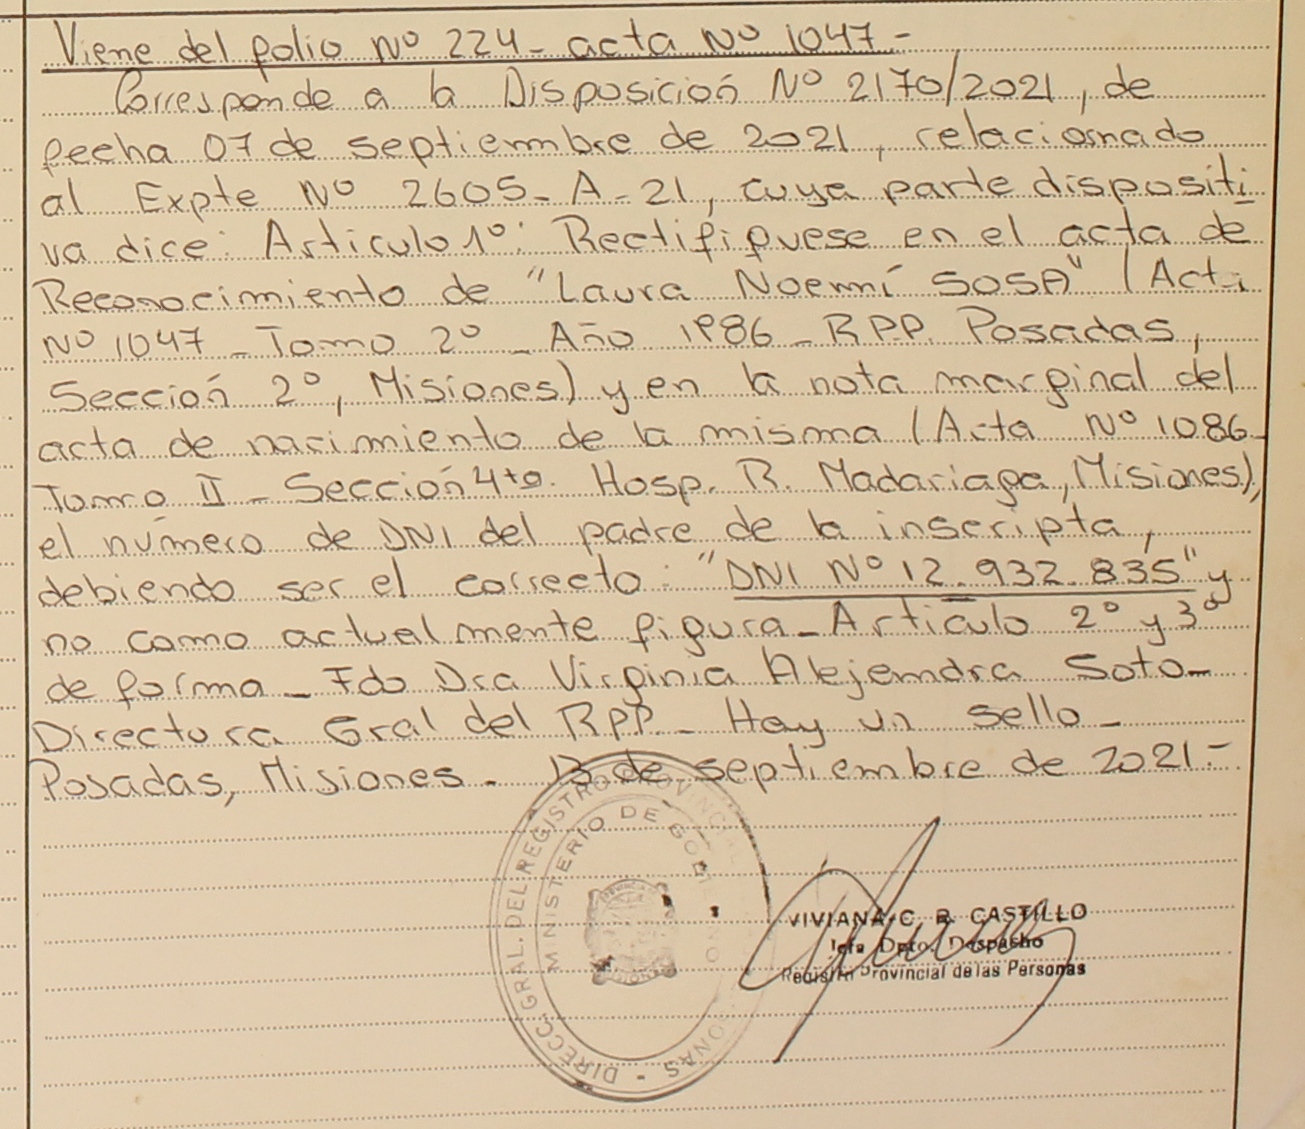 Viene del folio Nº 224 - acta Nº 1047 -
Corresponde a la Disposición Nº 2170/2021, de
fecha 07 de septiembre de 2021, relacionado
al Expte Nº 2605 - A - 21, cuya parte dispositi
va dice: Artículo 1º: Rectifíquese en el acta de
Reconocimiento de "Laura Noemí SOSA" (Acta
Nº 1047 - Tomo 2º - Año 1986 - RPP. Posadas,
Sección 2º, Misiones) y en la nota marginal del
acta de nacimiento de la misma (Acta Nº 1086 -
Tomo II - Sección 4ta. Hosp. R. Madariaga, Misiones),
el número de DNI del padre de la inscripta,
debiendo ser el correcto: "DNI Nº 12.932.835" y
no como actualmente figura - Artículo 2º y 3º
de forma - Fdo Dra Virginia Alejandra Soto -
Directora Gral del RPP. - Hay un sello -
Posadas, Misiones - 13 de septiembre de 2021 -
DIRECC. GRAL. DEL REGISTRO PROVINCIAL
MINISTERIO DE GOBIERNO
VIVIANA C. B. CASTILLO
Jefa Dpto. Despacho
Registro Provincial de las Personas